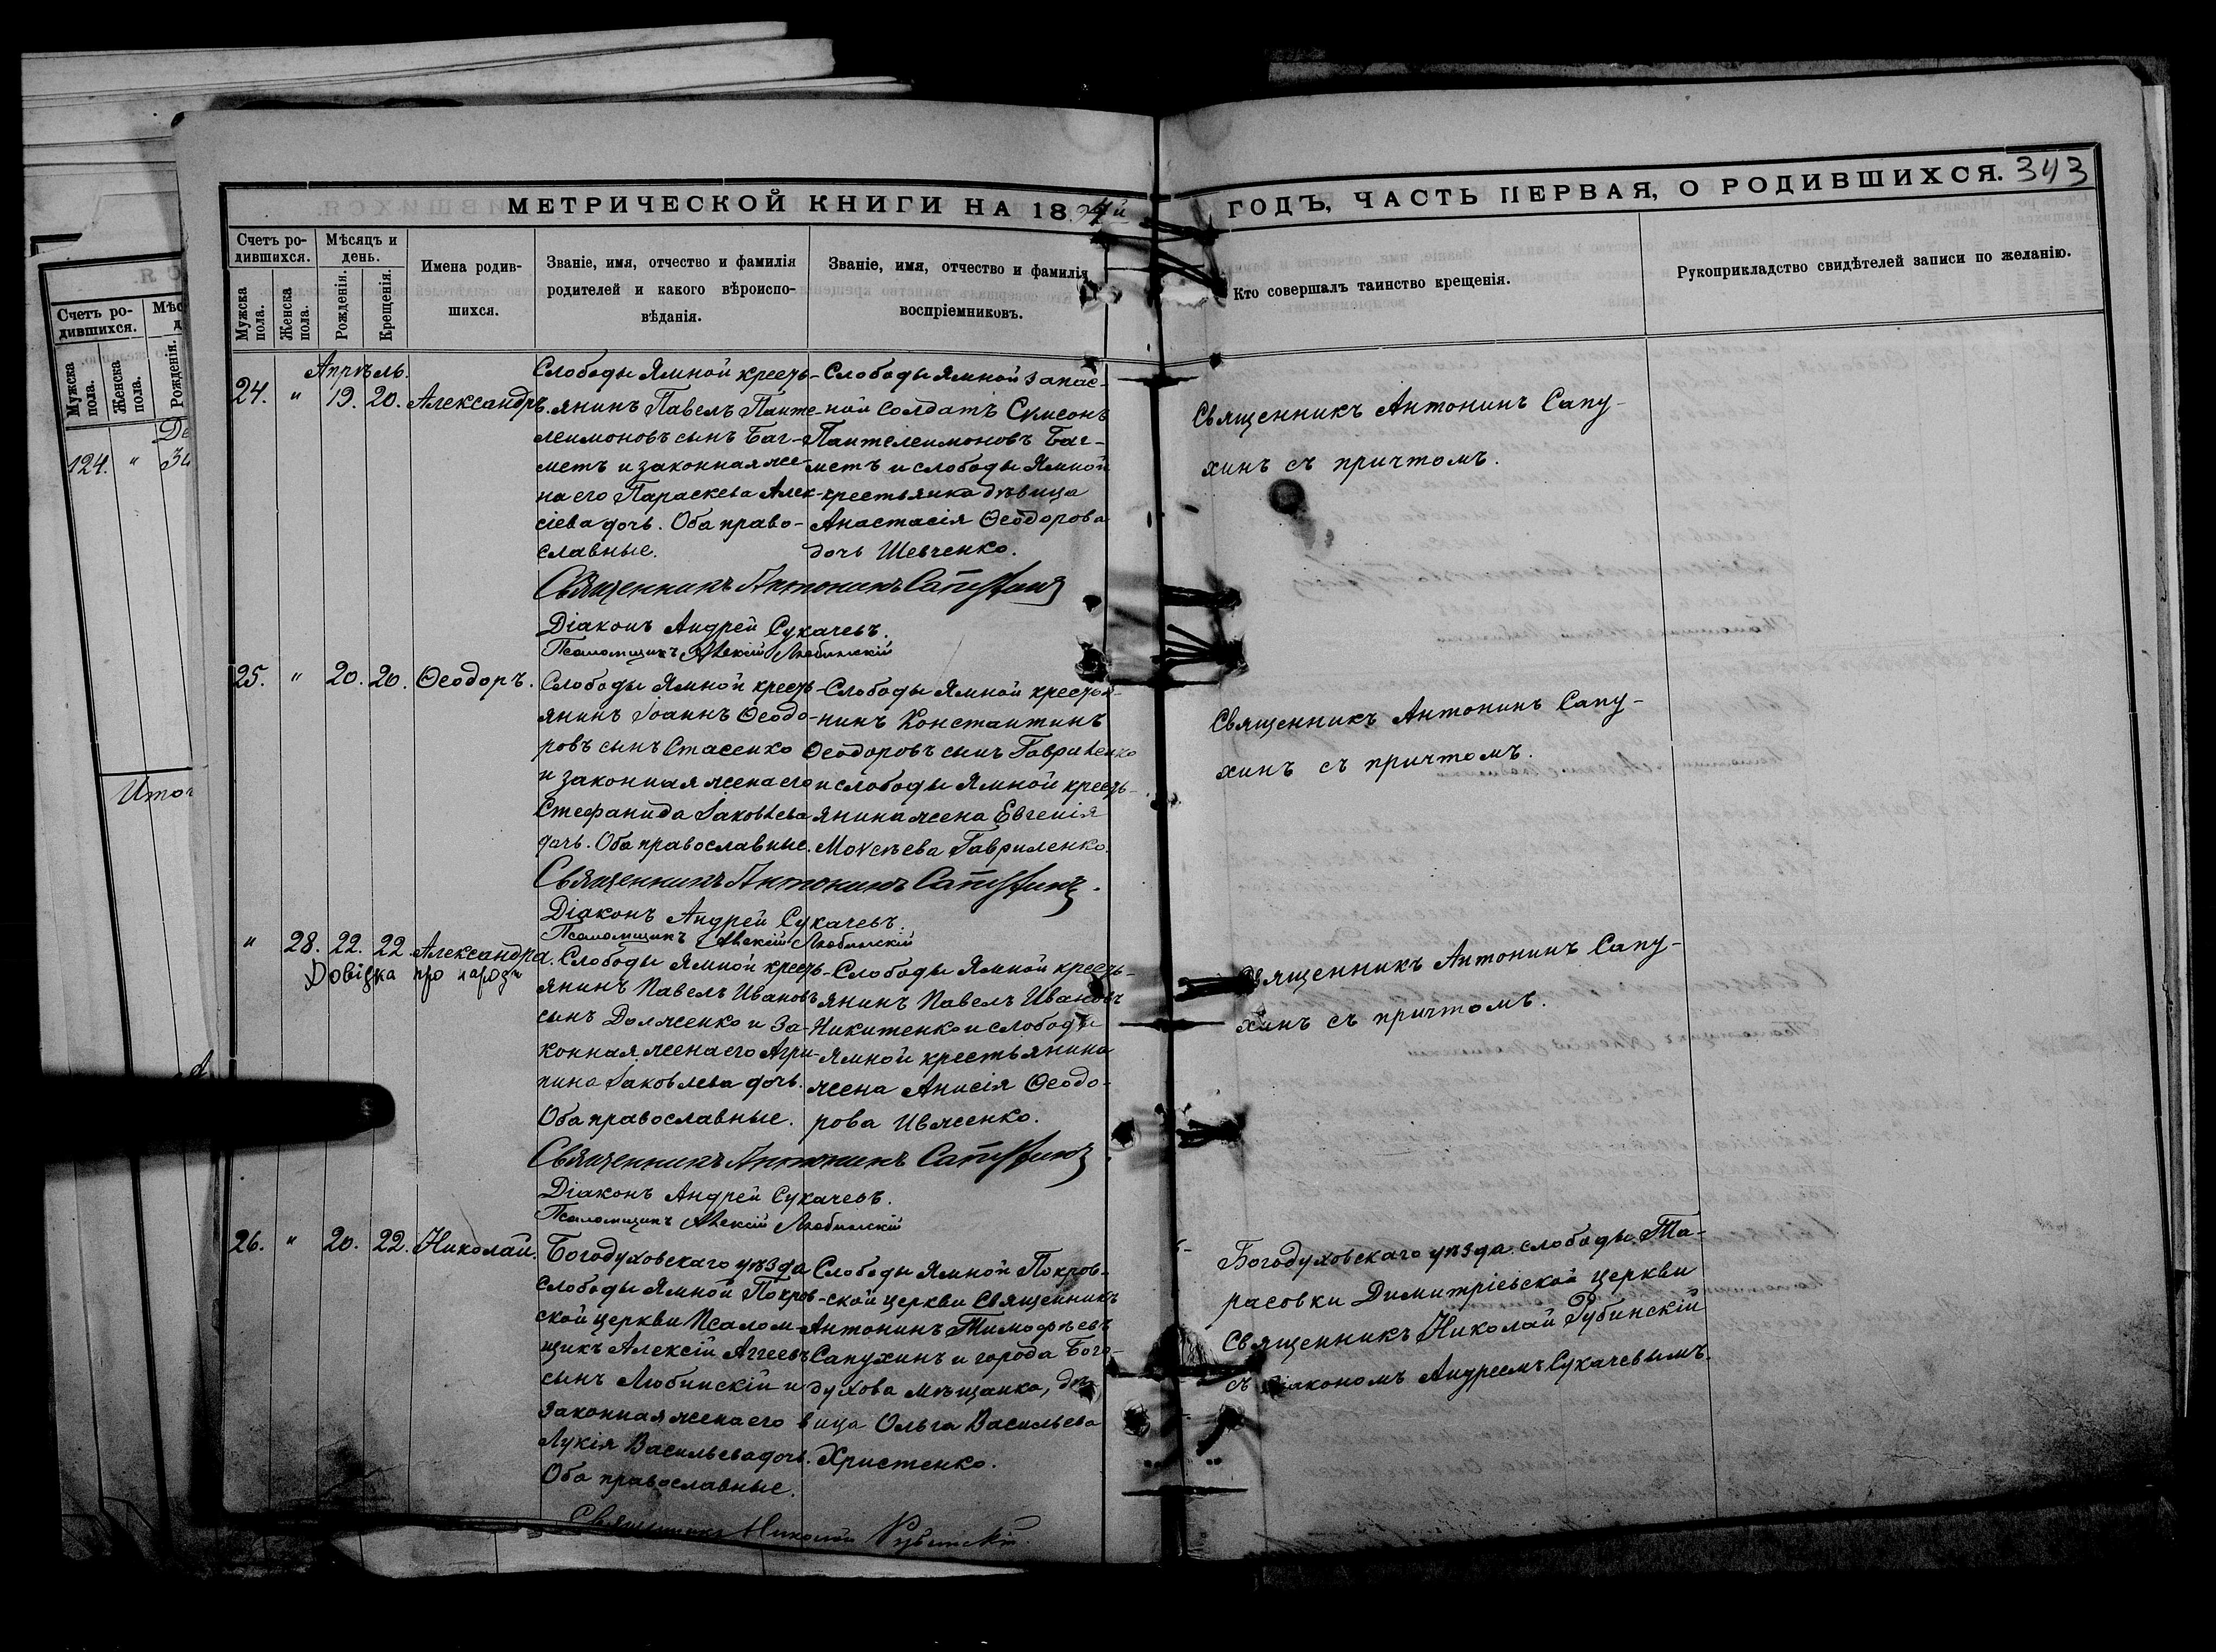 МЕТРИЧЕСКОЙ КНИГИ НА 18
ГОДЪ, ЧАСТЬ ПЕРВАЯ, О РОДИВШИХСЯ. 343
Счетъ ро-
дившихся.
Мужска
пола.
Женска
пола.
Мѣсяцъ и
день.
Рожденія.
Крещенія.
Имена родив-
шихся.
Званіе, имя, отчество и фамилія
родителей и какого вѣроиспо-
вѣданія.
Званіе, имя, отчество и фамилія
воспріемниковъ.
Кто совершалъ таинство крещенія.
Рукоприкладство свидѣтелей записи по желанію.
Счетъ ро-
дившихся.
Мужска
пола.
Женска
пола.
Рожденія.
124. "
Апрѣль.
24. " 19. 20. Александръ.
Слободы Ямной кресть-
янинъ Павелъ Панте-
леимоновъ сынъ Баг-
метъ и законная же-
на его Параскева Алек-
сіева дочь. Оба право-
славные.
Слободы Ямной запас-
ной солдатъ Симеонъ
Пантелеимоновъ Баг-
метъ и слободы Ямной
крестьянка дѣвица
Анастасія Ѳеодорова
дочь Шевченко.
Священникъ Антонинъ Сапу-
хинъ съ причтомъ.
Священникъ Антонинъ Сапухинъ
Діаконъ Андрей Сукачевъ.
Псаломщикъ Алексій Любинскій
25. " 20. 20. Ѳеодоръ.
Слободы Ямной кресть-
янинъ Іоаннъ Ѳеодо-
ровъ сынъ Стасенко
и законная жена его
Стефанида Іаковлева
дочь. Оба православные.
Слободы Ямной крестья-
нинъ Константинъ
Ѳеодоровъ сынъ Гавриленко
и слободы Ямной кресть-
янина жена Евгенія
Моѵсеева Гавриленко.
Священникъ Антонинъ Сапу-
хинъ съ причтомъ.
Священникъ Антонинъ Сапухинъ.
Діаконъ Андрей Сукачевъ.
Псаломщикъ Алексій Любинскій
" 28. 22. 22. Александра.
Довідка про народж
Слободы Ямной кресть-
янинъ Павелъ Ивановъ
сынъ Долженко и за-
конная жена его Агри-
пина Іаковлева дочь.
Оба православные.
Слободы Ямной кресть-
янинъ Павелъ Ивановъ
Никитенко и слободы
Ямной крестьянина
жена Анисія Ѳеодо-
рова Ивженко.
Священникъ Антонинъ Сапу-
хинъ съ причтомъ.
Священникъ Антонинъ Сапухинъ
Діаконъ Андрей Сукачевъ.
Псаломщикъ Алексій Любинскій
26. " 20. 22. Николай.
Богодуховскаго уѣзда
слободы Ямной Покров-
ской церкви Псалом-
щикъ Алексій Аггеевъ
сынъ Любинскій и
законная жена его
Лукія Васильева дочь.
Оба православные.
Слободы Ямной Покров-
ской церкви Священникъ
Антонинъ Тимофѣевъ
Сапухинъ и города Бого-
духова мѣщанка, дѣ-
вица Ольга Васильева
Христенко.
Богодуховскаго уѣзда слободы Та-
расовки Димитріевской церкви
Священникъ Николай Рубинскій
съ діакономъ Андреемъ Сукачевымъ.
Священникъ Николай Рубинскій.